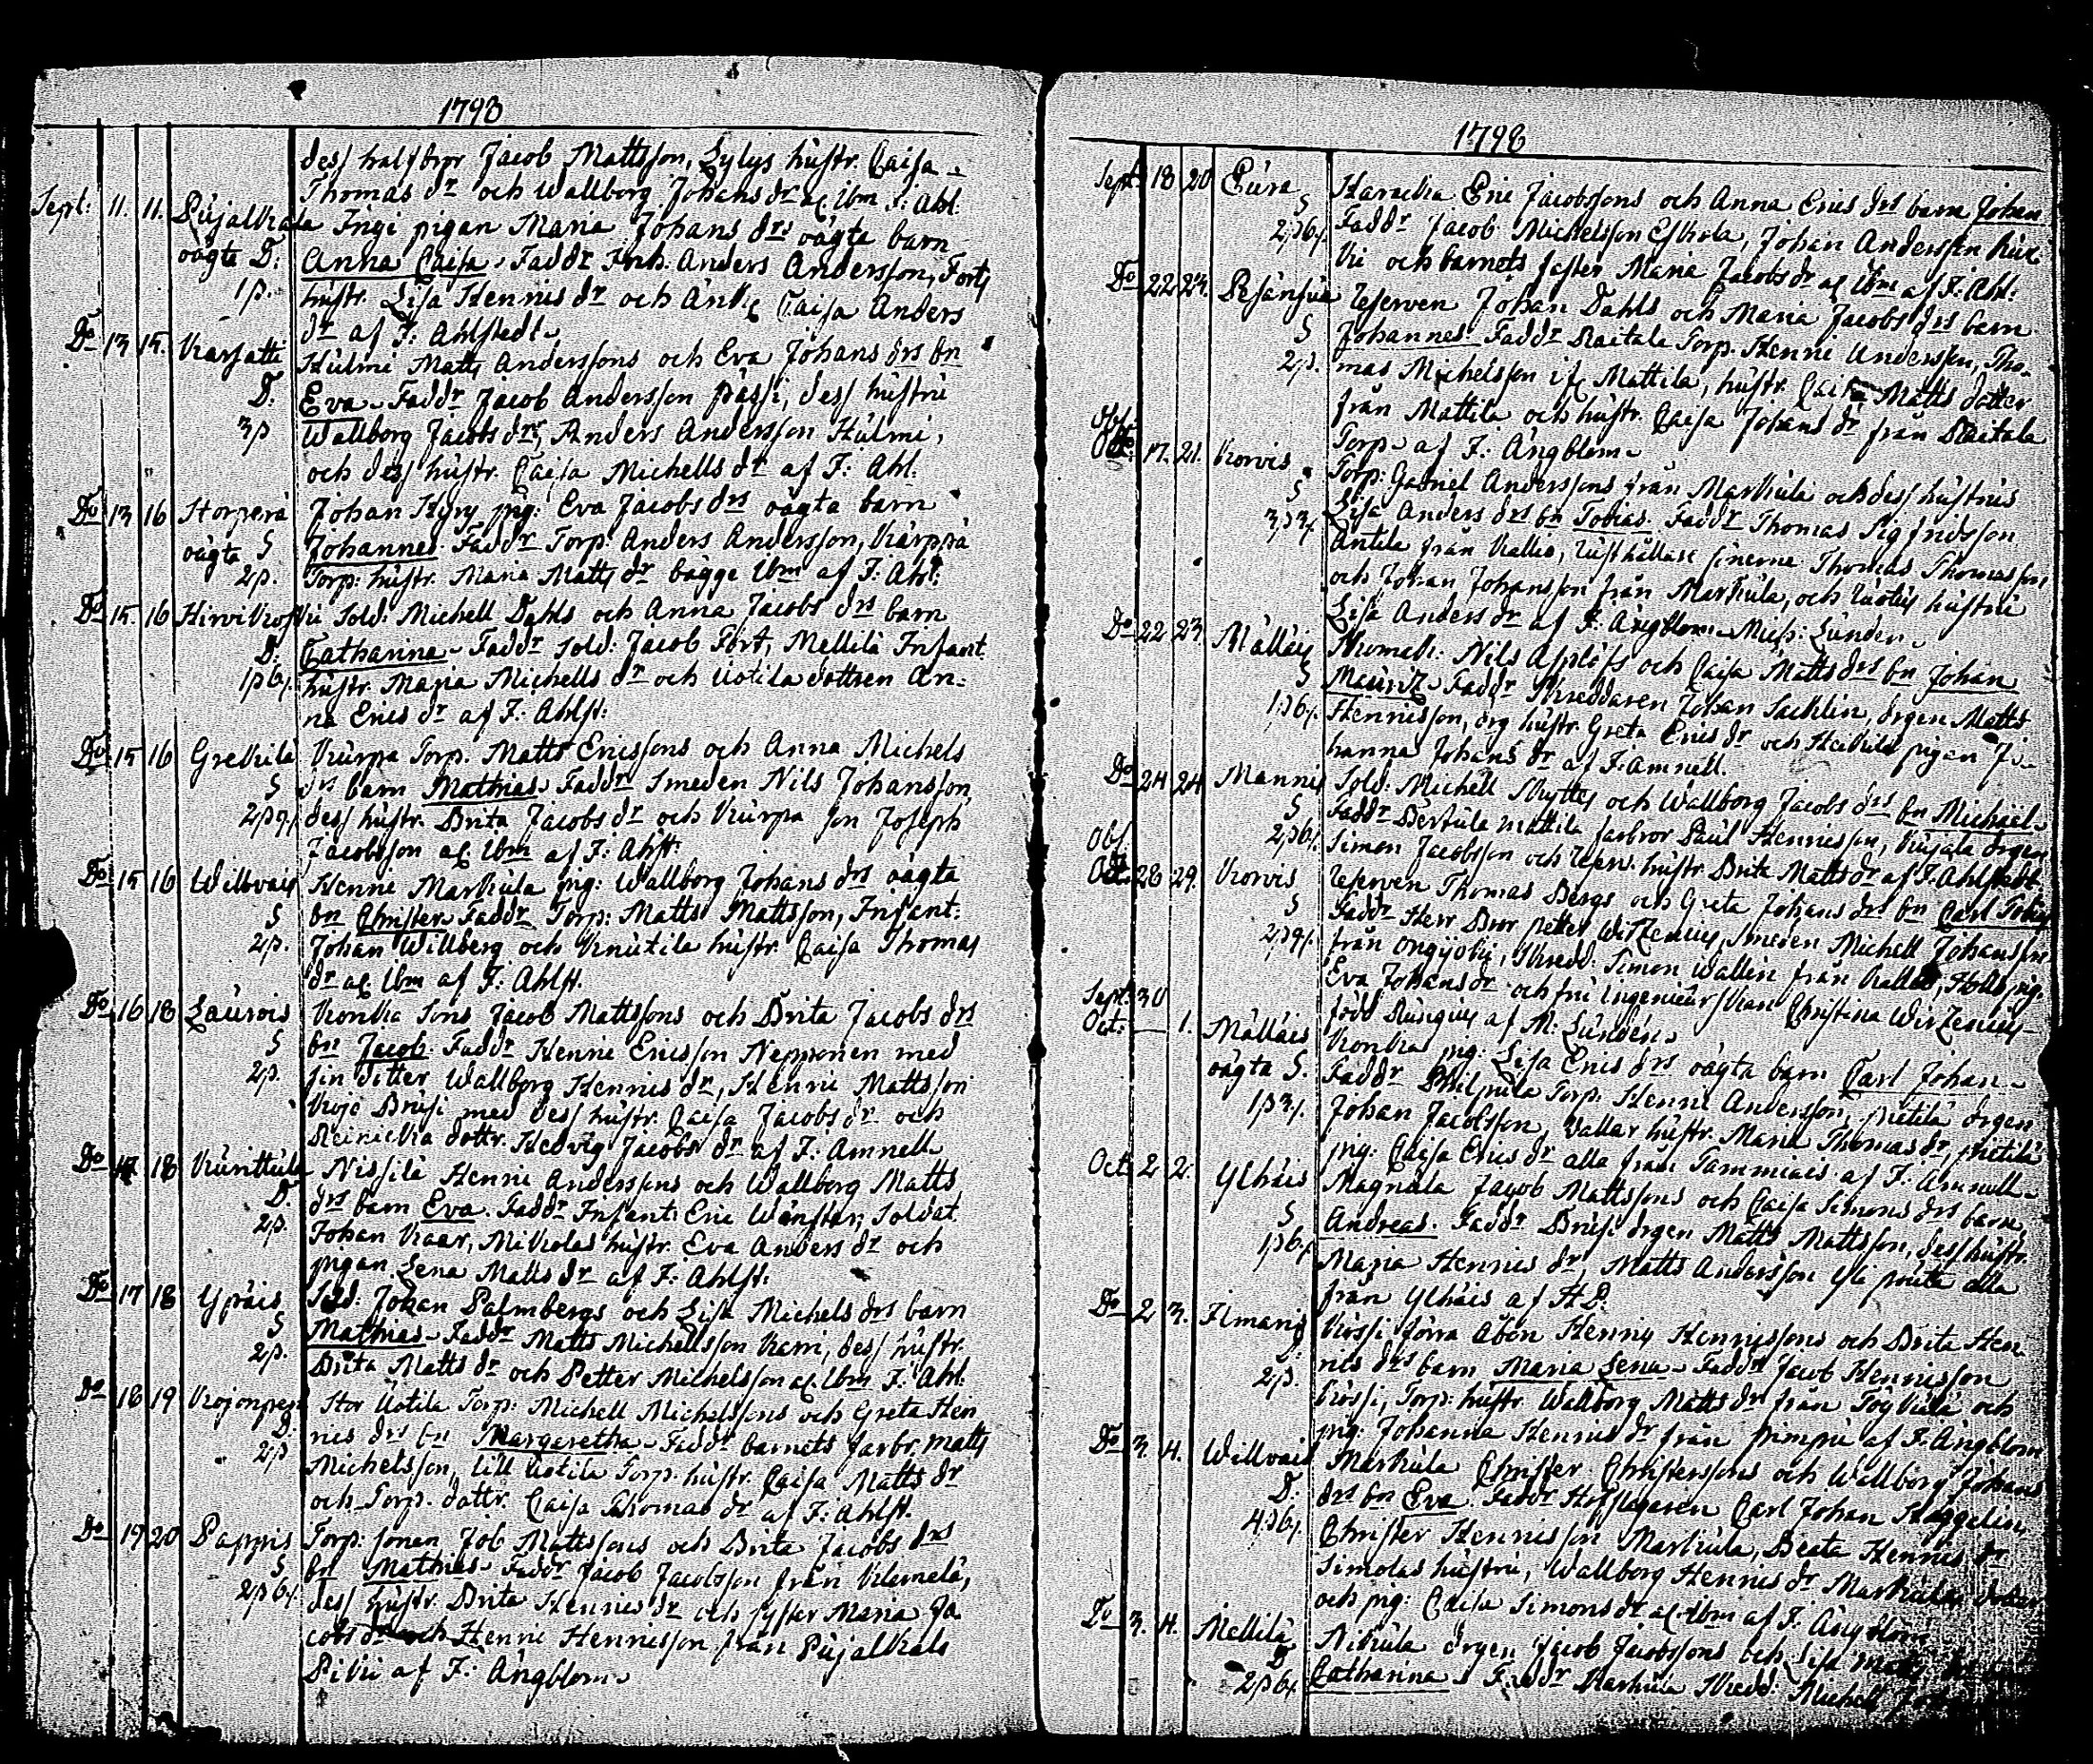 1798
dess halfbror Jacob Mattsson, Lylys hustr. Caisa
Thomas dr och Wallborg Johans dr ac ibm F: Ahl:
Sept: 11. 11. Pujalkala Ingi pigan Maria Johans drs oägta barn
oägta D: Anna Caisa. Faddr Inh. Anders Andersson, Forts
1p. hustr. Lisa Hennis dr och Änk. Caisa Anders
dr af F: Ahlstedt
Do 13 15. Karsatti Hulmi Matts Anderssons och Eva Johans drs bn
D. Eva. Faddr Jacob Andersson Pässi, dess hustru
3p Wallborg Jacobs dr, Anders Andersson Hulmi,
och dess hustr. Caisa Michells dr af F: Ahl:
Do 13 16 Horperä Johan Hyry pig: Eva Jacobs drs oägta barn
oägta S Johannes. Faddr Torp. Anders Andersson, Kärppä
2p. Torp: hustr. Maria Matts dr bägge ibm af F: Ahl:
Do 15. 16 Hirvikoski Sold: Michell Dahls och Anna Jacobs drs barn
D. Catharina. Faddr Sold: Jacob Fort, Mellilä Infant.
1p6 hustr. Maria Michells dr och Uotila dottren An-
na Erics dr af F: Ahlst:
Do 15 16 Grekilä Kurpa Torp. Matts Ericssons och Anna Michels
S drs barn Mathias. Faddr Smeden Nils Johansson,
2p9 dess hustr. Brita Jacobs dr och Kurpa son Joseph
Jacobsson ac ibm af F: Ahlst:
Do 15 16 Willvais Henric Markula pig: Wallborg Johans drs oägta
S bn Christer. Faddr Torp: Matts Mattsson, Infant:
2p. Johan Willberg och Knutila hustr. Caisa Thomas
dr ac ibm af F: Ahlst.
Do 16 18 Laurois Konkka Sons Jacob Mattssons och Brita Jacobs drs
S bn Jacob. Faddr Henric Ericsson Nepponen med
2p. sin dotter Wallborg Hennis dr, Henric Mattsson
Kojo Brusi med dess hustr. Caisa Jacobs dr och
Reinickka dottr. Hedvig Jacobs dr af F: Amnell
Do 17 18 Kurittula Nissilä Henric Anderssons och Wallborg Matts
D. drs barn Eva. Faddr Infant: Eric Wänster, Soldat
2p. Johan Kaar, Mikkolas hustr. Eva Anders dr och
pigan Lena Matts dr af F: Ahlst:
Do 17 18 Ypäis Sold: Johan Palmbergs och Lisa Michels drs barn
S Mathias. Faddr Matts Michellsson Kami, dess hustr.
2p. Brita Matts dr och Petter Michelsson ac ibm F: Ahl:
Do 18 19 Kojonperä Stor Uotila Torp: Michell Michelssons och Greta Hen
D. nies drs bn Margaretha. Faddr barnets farbr. Matts
2p Michelsson, Lill Uotila Torp. hustr. Caisa Matts dr
och Torp. dottr. Caisa Thomas dr af F: Ahlst.
Do 19 20 Pappis Torp: sonen Job Mattssons och Brita Jacobs drs
S bn Mathias. Faddr Jacob Jacobsson från Kilemelä,
2p6 dess hustr. Brita Hennis dr och syster Maria Ja
cobs dr och Henric Hennisson från Pujalkala
Pikku af F: Ängblom
1798
Sept: 18 20 Eura Harackka Eric Jacobssons och Anna Erics drs barn Johan
S Faddr Jacob Michelsson Eskola, Johan Andersson
2p6 och barnets faster Maria Jacobs dr ac ibm af F: Ahl:
Do 22 23. Pesänsuo Reserven Johan Dahls och Maria Jacobs drs barn
S Johannes. Faddr Raitala Torp. Henric Andersson, Tho-
2p. mas Michelsson Mattila, hustr. Caisa Matts dotter
från Mattila och hustr. Caisa Johans dr från Raitala
Torp af F: Ängblom
Obs. Oct: 17. 21. Korvis Torp: Gabriel Anderssons från Markula och dess hustrus
S Lisa Anders drs bn Tobias. Faddr Thomas Sigfridsson
3p3 Antila från Kallio, Rusthållare sönerne Thomas Thomasson
och Johan Johansson från Markula, och hustru
Lisa Anders dr af F: Ängblom Miss: Lunden
Do 22 23. Mälläis Skomak: Nils Asplöfs och Caisa Matts drs bn Johan
S Mauritz. Faddr Skreddaren Johan Sacklin, drgen Matts
1p6 Hennisson, drg hustr. Greta Erics dr och pigan Jo-
hanna Johans dr af F: Amnell.
Do 24 24 Mannis Sold: Michell Skytts och Wallborg Jacobs drs bn Michael
S Faddr Perttula Mattila farbror Paul Hennisson, drgen
2p6 Simon Jacobsson och Reserv. hustr. Brita Matts dr af F: Ahlstedt
Obs. Oct: 28 29. Korvis Reserven Thomas Bergs och Greta Johans drs bn Carl Tobias
S Faddr Herr Bror Petter Wirzenius, Smeden Michell Johansson
2p9 från , Skredd. Simon Wallin från Kallio, pig:
Eva Johans dr och fru Ingenieurskan Christina Wirzenius
född af M. Lunden
Sept: 30
Oct: 1. Mälläis Konkka pig: Lisa Erics drs oägta barn Carl Johan
oägta S. Faddr Philpula Torp. Henric Andersson, Pietilä drgen
1p3 Johan Jacobsson, Vallar hustr. Maria Thomas dr, Pietilä
pig: Caisa Erics dr alla från Tammiais af F: Amnell
Oct: 2 2. Ylhäis Magnula Jacob Mattssons och Caisa Simons drs barn
S Andreas. Faddr Brusi drgen Matts Mattsson, dess hustr.
1p6 Maria Hennis dr, Matts Andersson Yli alla
från Ylhäis af H D.
Do 2 3. Ilmaris Kossi förra Åbon Henric Hennissons och Brita Hen
D. nies drs barn Maria Lena. Faddr Jacob Hennisson
2p. Kossi, Torp: hustr. Wallborg Matts dr från och
pig: Johanna Hennis dr från Pimpu af F: Ängblom
Do 3. 4. Willvais Markula Christer Christerssons och Wallborg Johans
D. drs bn Eva. Faddr Hofslagaren Carl Johan Häggelin,
4p6 Christer Hennisson Markula, Beata Hennis dr
Simolas hustru, Wallborg Hennis dr Markulas dotter
och pig: Caisa Simons dr ac ibm af F: Ängblom
Do 3. 4. Mellilä Nikula drgen Jacob Jacobssons och Lisa Matts
D Catharina. Faddr Markula Skredd: Michell
2p6